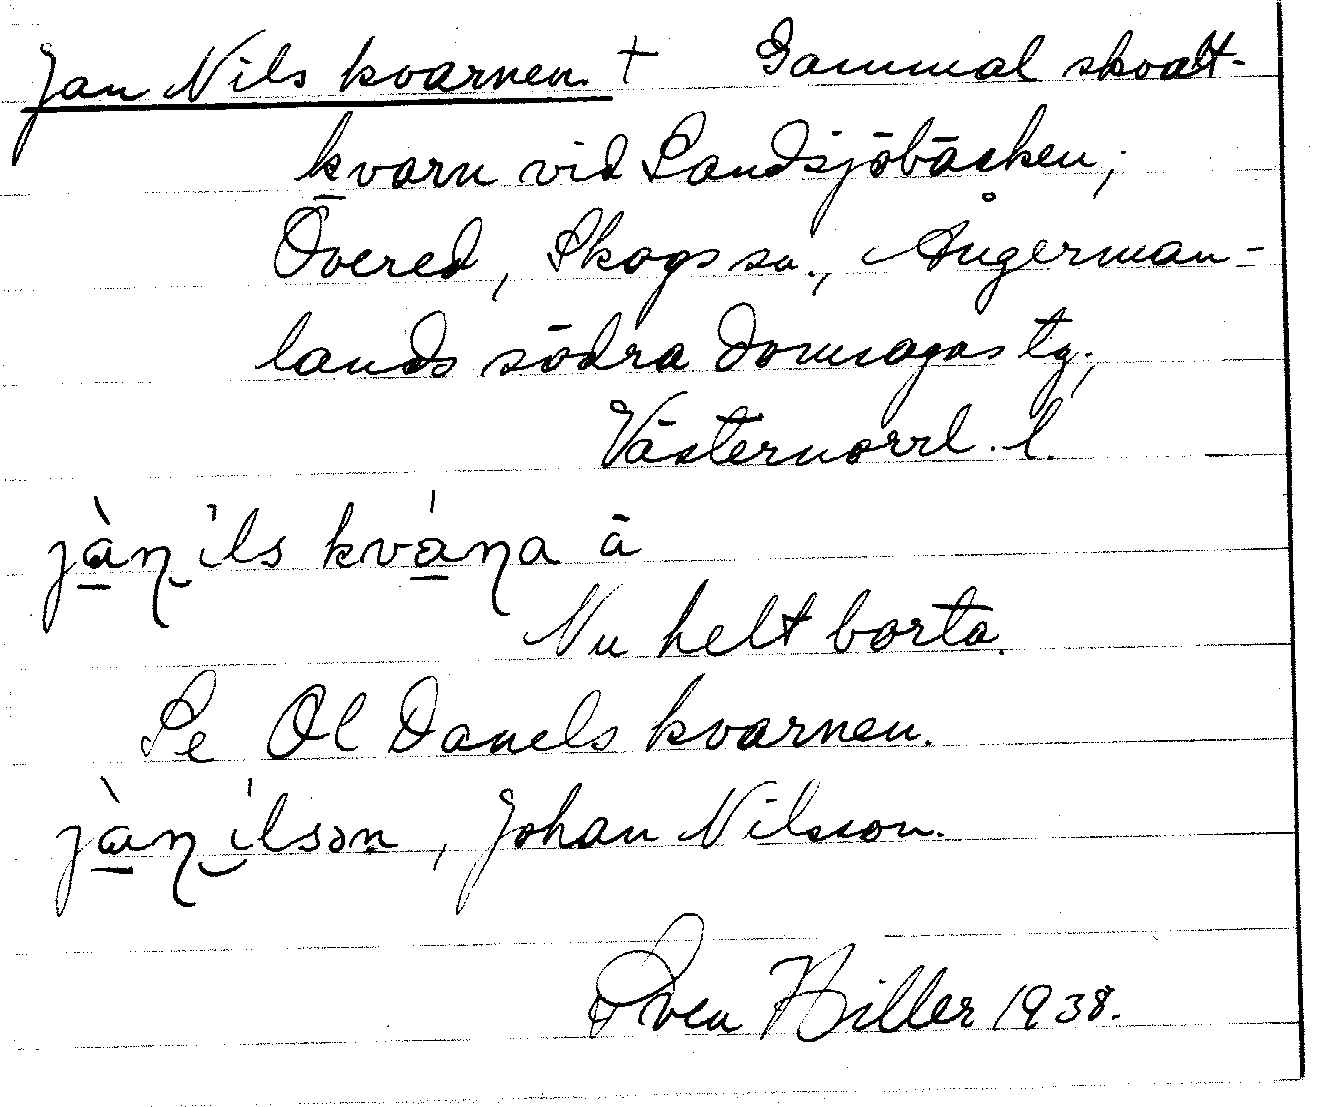 Jan Nils kvarnen. † Gammal skvalt-
kvarn vid Sandsjöbäcken,
Övered, Skogs sn., Ångerman-
lands södra domsagas tg.,
Västernorrl. l.
jàn̡ ìls kvána ä
Nu helt borta.
Se Ol Danels kvarnen.
jàn̡ ìlsən, Johan Nilsson.
Sven Hiller 1938.